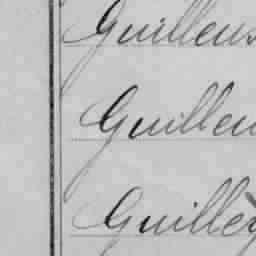 Guillens
Guillen
Guilley